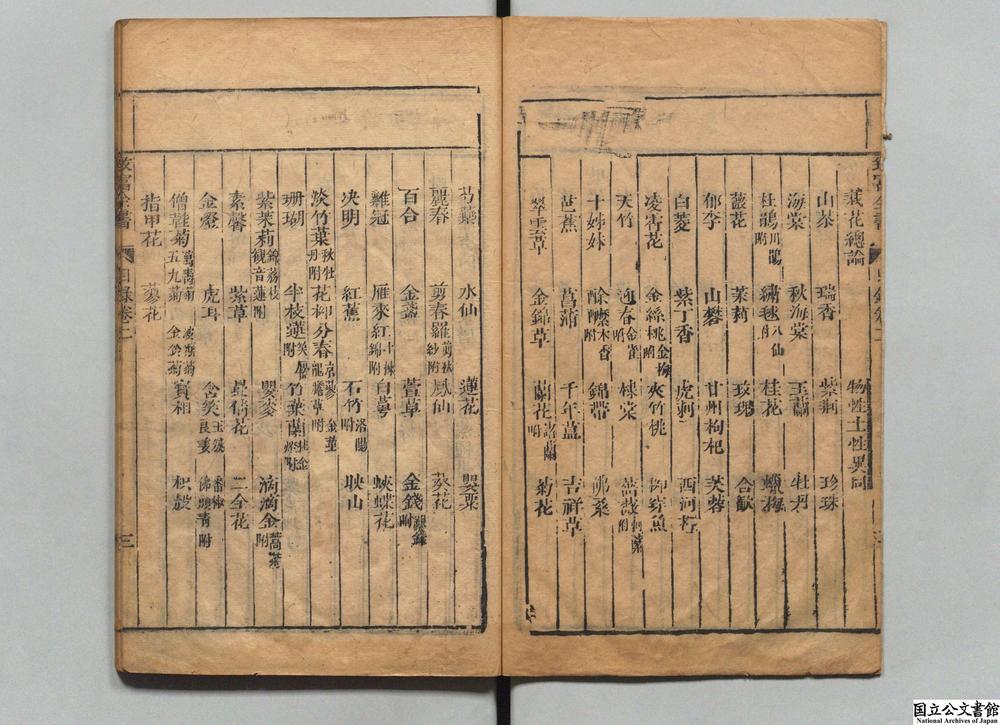 致富全書 目錄卷二
栽花總論 物性土性異同
山茶 瑞香 紫荊 珍珠
海棠 秋海棠 玉蘭 牡丹
杜鵑川鵑附 繡毬八仙附 桂花 蠟梅
薔花 茉莉 玫瑰 合歡
郁李 山礬 甘州枸杞 芙蓉
白菱 紫丁香 虎刺 西河柳
凌霄花 金絲桃金梅附 夾竹桃 御穿魚
天竹 迎春金雀附 棣棠 薔薇刺薇附
十姊妹 酴醾木香附 錦帶 佛桑
芭蕉 菖蒲 千年蒀 吉祥草
翠雲草 金錦草 蘭花諸蘭附 菊花
芍藥 水仙 蓮花 罌粟
麗春 剪春羅剪秋紗附 鳳仙 葵花
百合 金盞 萱草 金錢附
雞冠 雁來紅十樣錦附 自萼 蛺蝶花
決明 紅蕉 石竹洛陽附 映山
淡竹葉秋牡丹附 花柳分春京蓼 金莖 龍膽草附
珊瑚 半枝蓮附 竹葉蘭
紫茉莉錦荔枝 觀音蓮附 嬰麥 滴滴金蒿菜附
素馨 紫草 曼倩花 二全花
金燈 虎耳 含笑玉簇 良姜 番椒 佛頭青附
僧鞋菊萬壽菊 波斯菊 五九菊 金鈴菊 寶相 枳殼
指甲花 蓼花
致富全書 目錄卷二 三
国立公文書館
National Archives of Japan